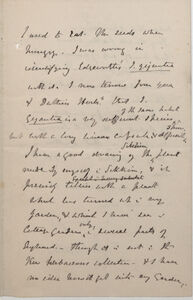 I used to eat the seeds when
hungry. I was wrong in
identifying Edgeworth's I. gigantea
with it. I now know from you
& Dalhins that I.
gigantea is a very different thing
but with a long
I have a good drawing of the plant
made by myself in Sikkim, & it
precisely tallies with a plant
which has turned up in my
Garden, & which I have seen in
Cottage Gardens in several parts of
England — though it is not in the
Kew Herbaceous collection — & I have
no idea how it got into my Garden,